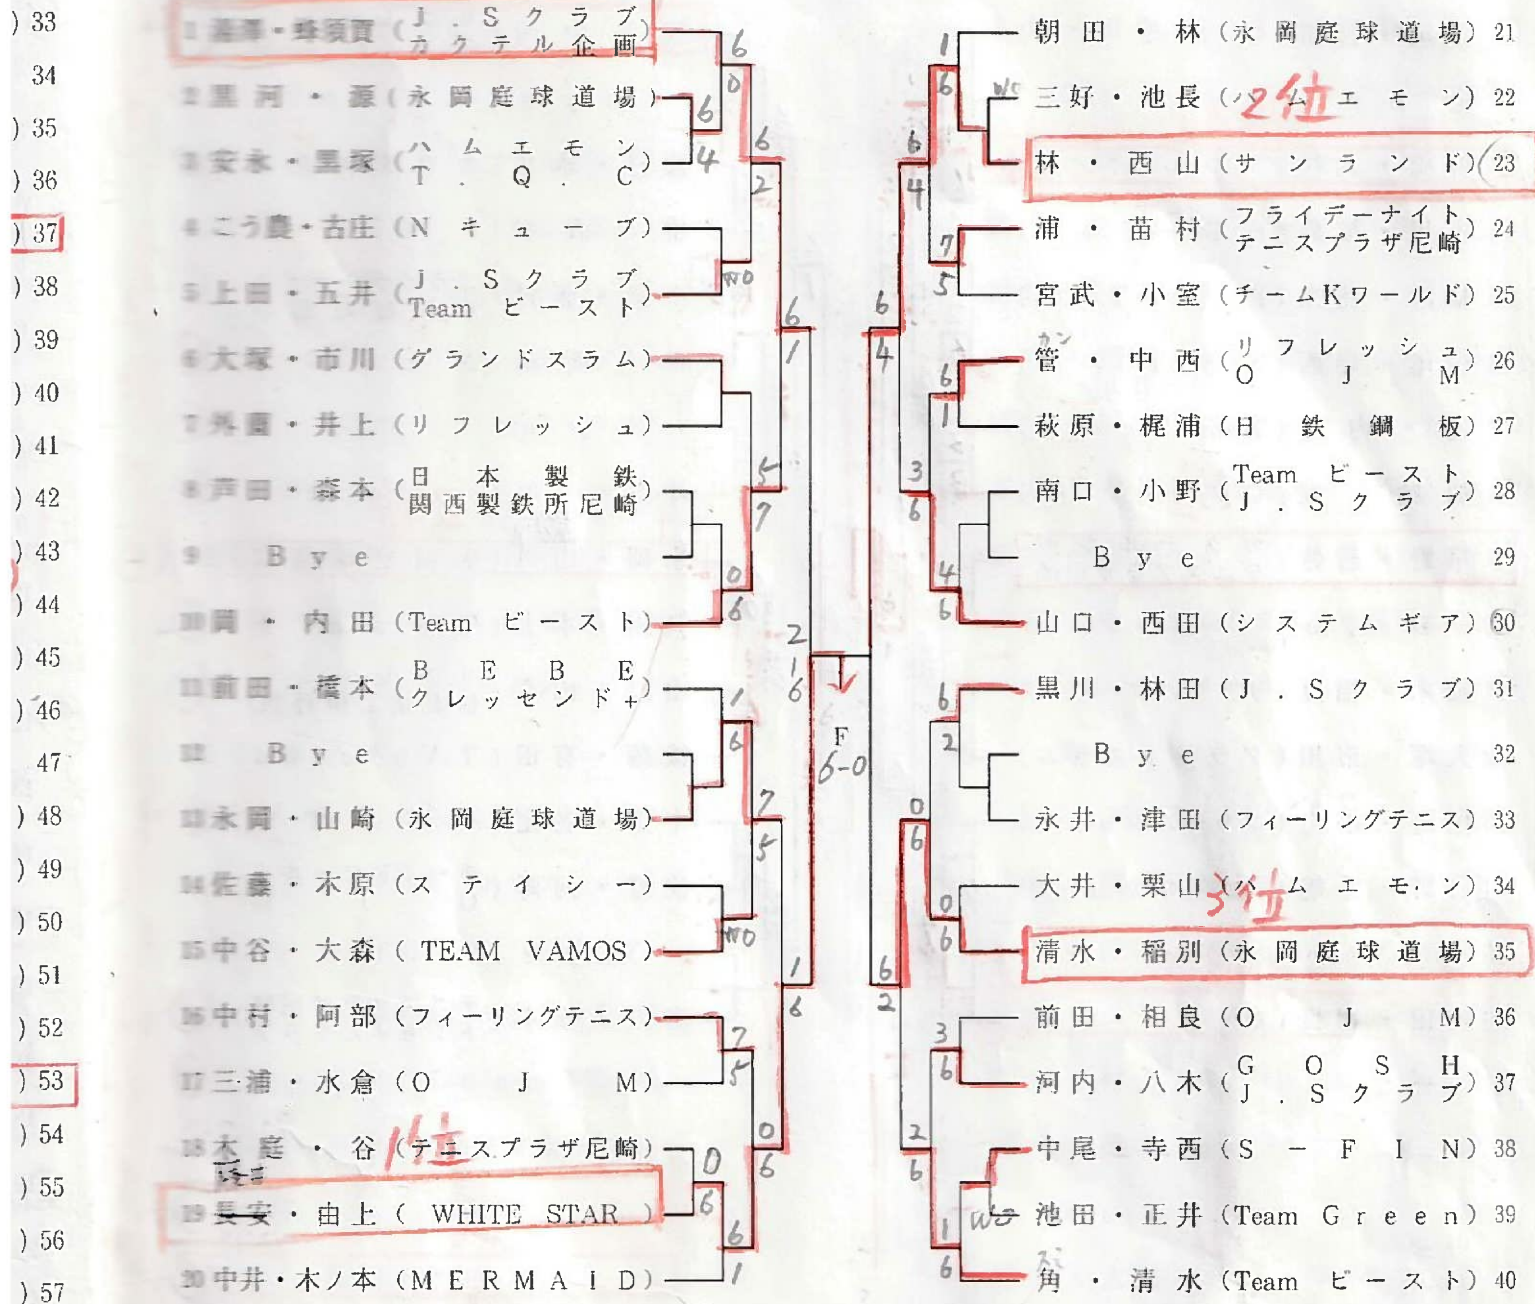 ) 33
34
) 35
) 36
) 37
) 38
) 39
) 40
) 41
) 42
) 43
) 44
) 45
) 46
47
) 48
) 49
) 50
) 51
) 52
) 53
) 54
) 55
) 56
) 57
1 ・蜂須賀 (J.Sクラブ カクテル企画)
2 黒河・源 (永岡庭球道場)
3 安永・黒塚 (ハムエモン T.Q.C)
4 こう農・古庄 (Nキューブ)
5 上田・五井 (J.Sクラブ Team ビースト)
6 大塚・市川 (グランドスラム)
7 外園・井上 (リフレッシュ)
8 芦田・森本 (日本製鉄 関西製鉄所尼崎)
9 Bye
10 岡・内田 (Team ビースト)
11 前田・橋本 (BEBE クレッセンド+)
12 Bye
13 永岡・山崎 (永岡庭球道場)
14 佐藤・木原 (ステイシー)
15 中谷・大森 (TEAM VAMOS)
16 中村・阿部 (フィーリングテニス)
17 三浦・水倉 (OJM)
18 木庭・谷 (テニスプラザ尼崎)
1位
19 長安・由上 (WHITE STAR)
20 中井・木ノ本 (MERMAID)
6 0
6 4
6 2
WO
6 1
5 7
0 6
2
1
6
1 6
7 5
WO
1 6
7 5
0 6
0 6
6 1
F
6-0
朝田・林 (永岡庭球道場) 21
三好・池長 (ハムエモン) 22
2位
林・西山 (サンランド) 23
浦・苗村 (フライデーナイト テニスプラザ尼崎) 24
宮武・小室 (チームKワールド) 25
カン
管・中西 (リフレッシュ OJM) 26
萩原・梶浦 (日鉄鋼板) 27
南口・小野 (Team ビースト J.Sクラブ) 28
Bye 29
山口・西田 (システムギア) 30
黒川・林田 (J.Sクラブ) 31
Bye 32
永井・津田 (フィーリングテニス) 33
大井・栗山 (ハムエモン) 34
3位
清水・稲別 (永岡庭球道場) 35
前田・相良 (OJM) 36
河内・八木 (GOSH J.Sクラブ) 37
中尾・寺西 (S-FIN) 38
池田・正井 (Team Green) 39
角・清水 (Team ビースト) 40
1 6
WO
6 4
7 5
6 4
6 1
3 6
4 6
6 2
0 6
0 6
6 2
3 6
2 6
WO
1 6